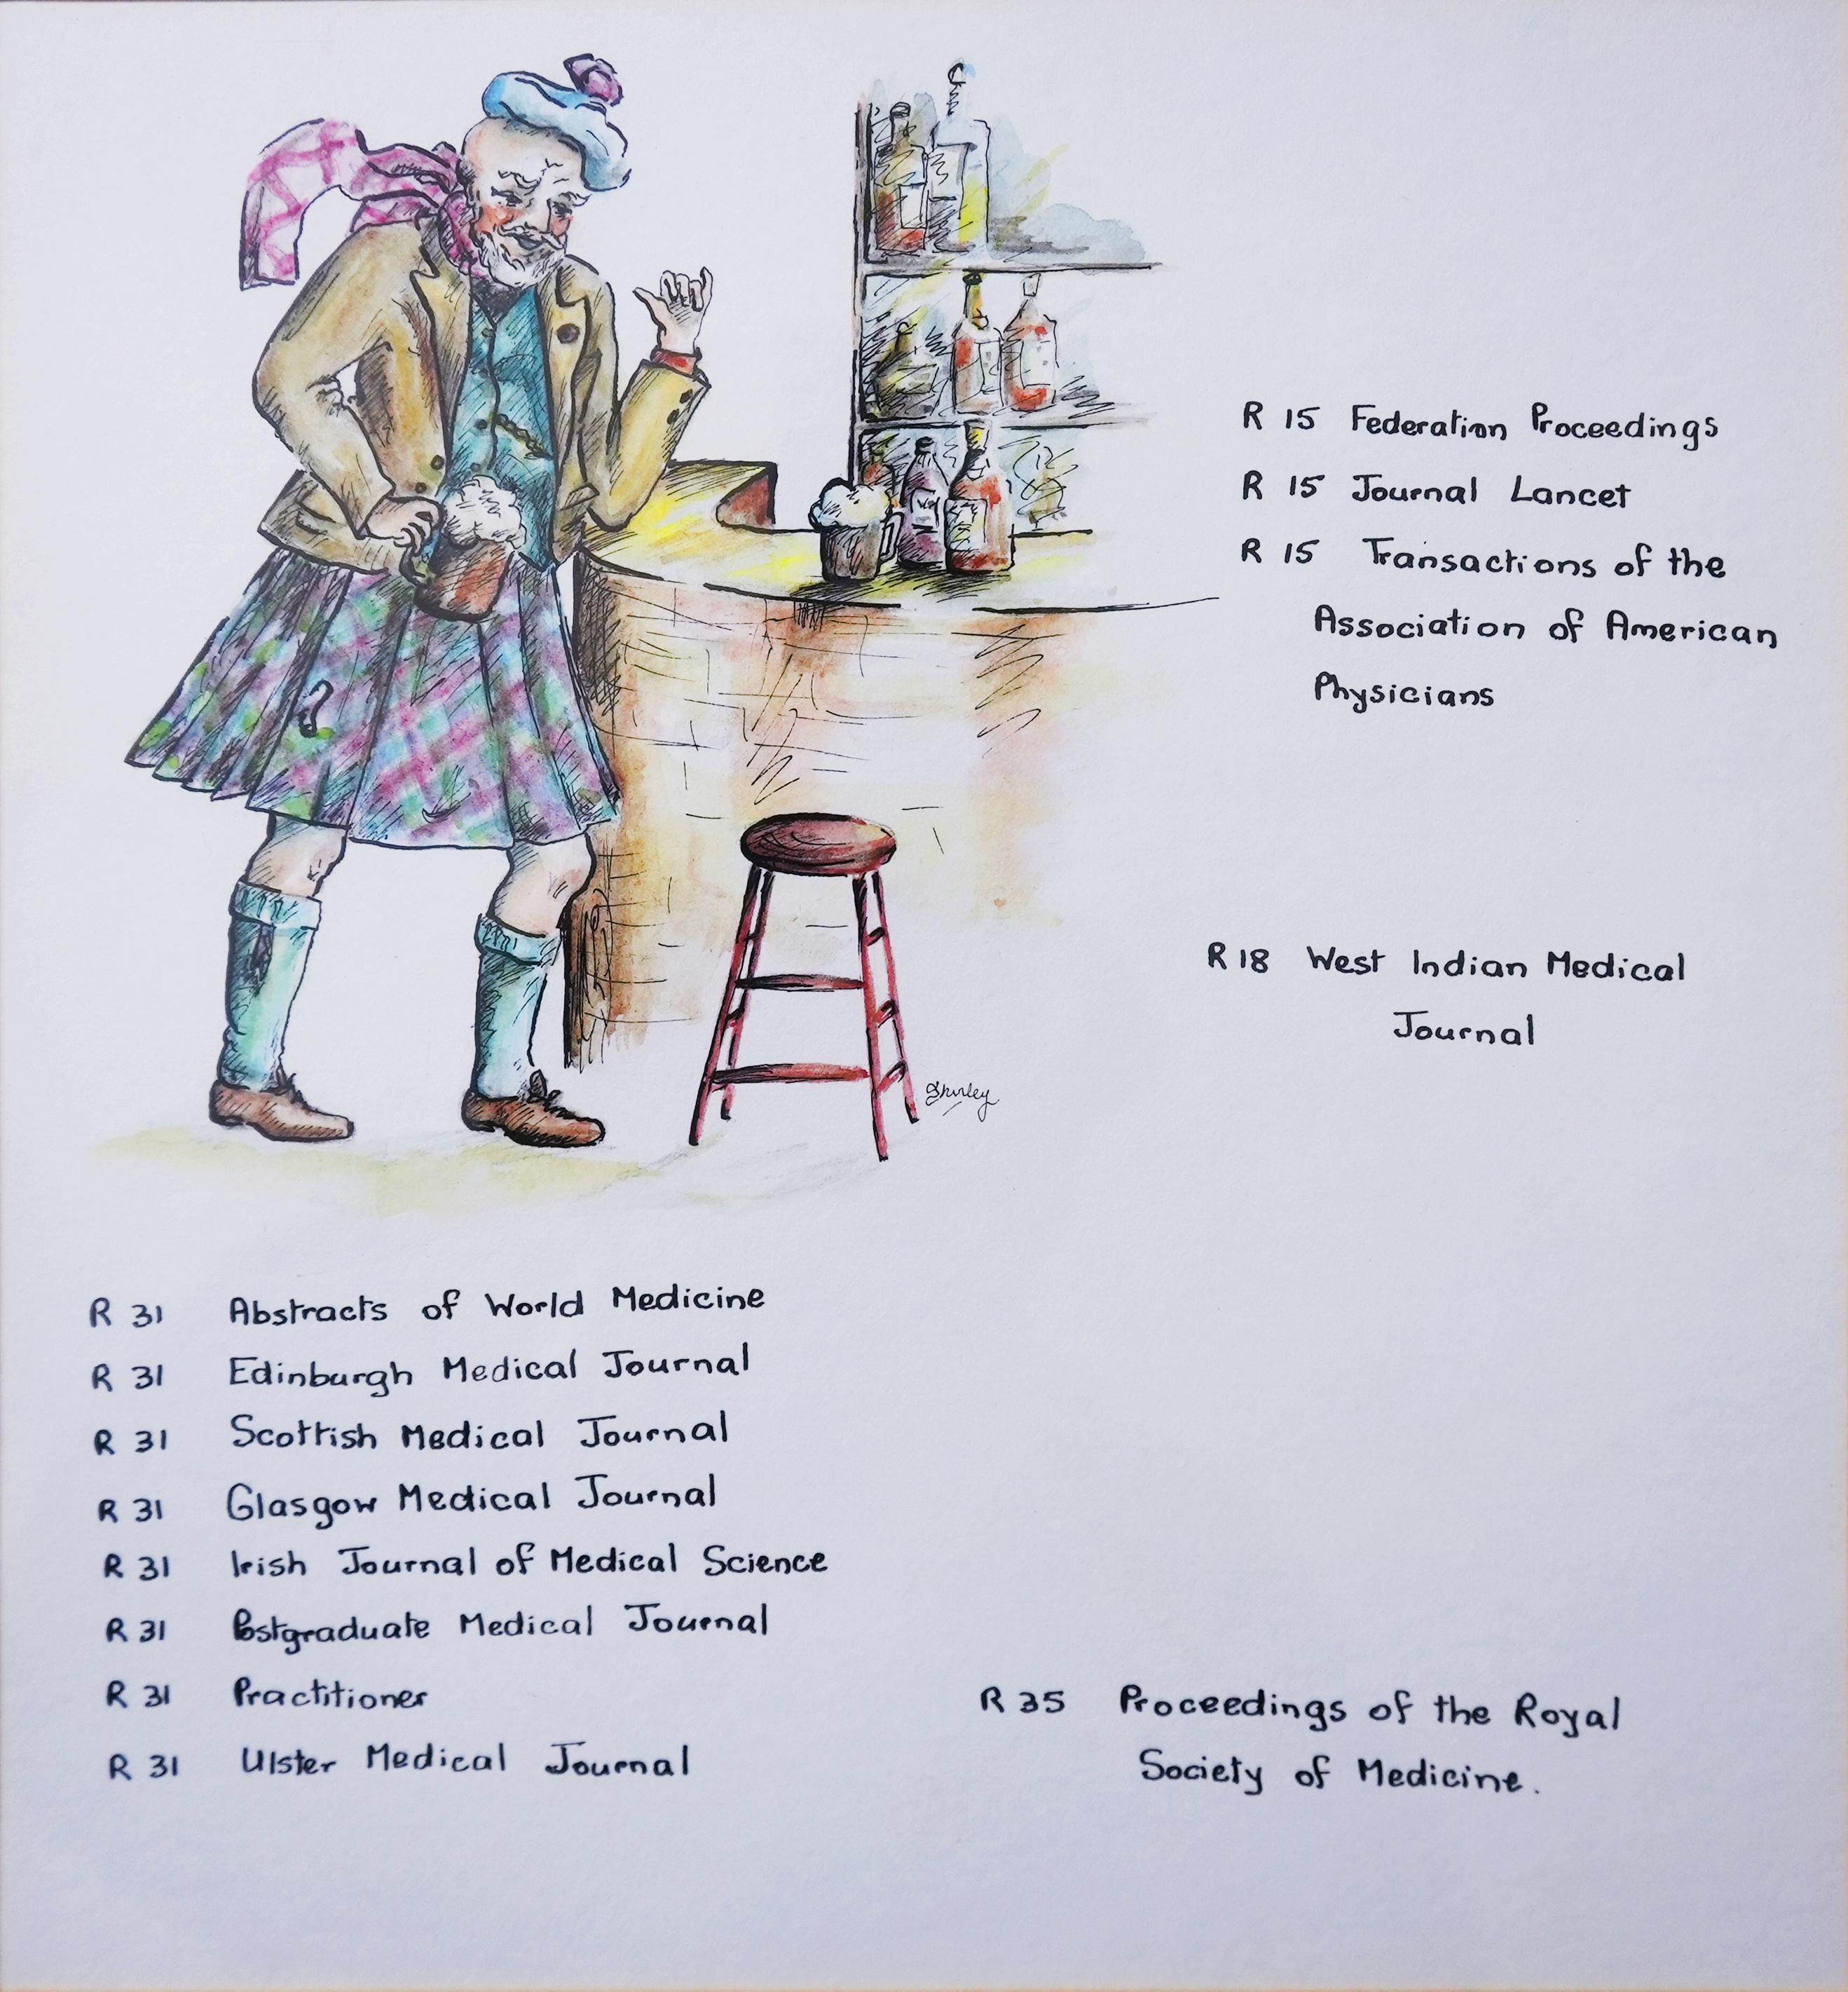 R 15 Federation Proceedings
R 15 Journal Lancet
R 15 Transactions of the
Association of American
Physicians
R 18 West Indian Medical
Journal
Shirley
R 31 Abstracts of World Medicine
R 31 Edinburgh Medical Journal
R 31 Scottish Medical Journal
R 31 Glasgow Medical Journal
R 31 Irish Journal of Medical Science
R 31 Postgraduate Medical Journal
R 31 Practitioner
R 31 Ulster Medical Journal
R 35 Proceedings of the Royal
Society of Medicine.